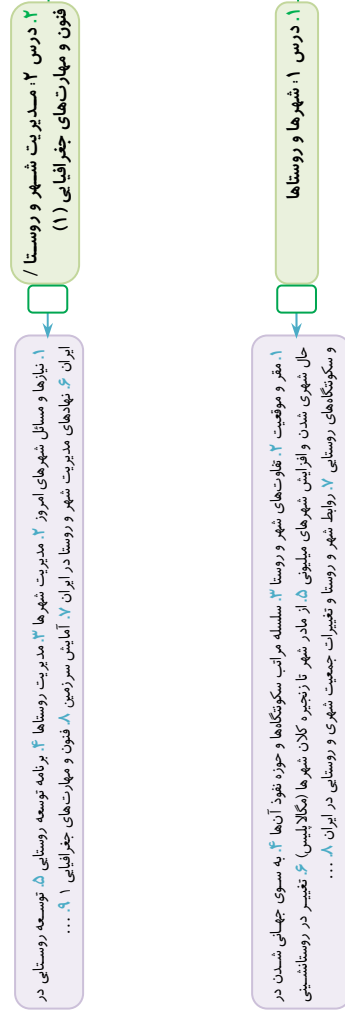 ۱. درس ۱: شهرها و روستاها
۱. مقر و موقعیت ۲. تفاوت‌های شهر و روستا ۳. سلسله مراتب سکونتگاه‌ها و حوزه نفوذ آن‌ها ۴. به سوی جهانی شدن در
حال شهری شدن و افزایش شهرهای میلیونی ۵. از مادر شهر تا زنجیره کلان شهرها (مگالاپلیس) ۶. تغییر در روستانشینی
و سکونتگاه‌های روستایی ۷. روابط شهر و روستا و تغییرات جمعیت شهری و روستایی در ایران ۸. ...
۲. درس ۲: مدیریت شهر و روستا /
فنون و مهارت‌های جغرافیایی (۱)
۱. نیازها و مسائل شهرهای امروز ۲. مدیریت شهرها ۳. مدیریت روستاها ۴. برنامه توسعه روستایی ۵. توسعه روستایی در
ایران ۶. نهادهای مدیریت شهر و روستا در ایران ۷. آمایش سرزمین ۸. فنون و مهارت‌های جغرافیایی ۱ ۹. ...